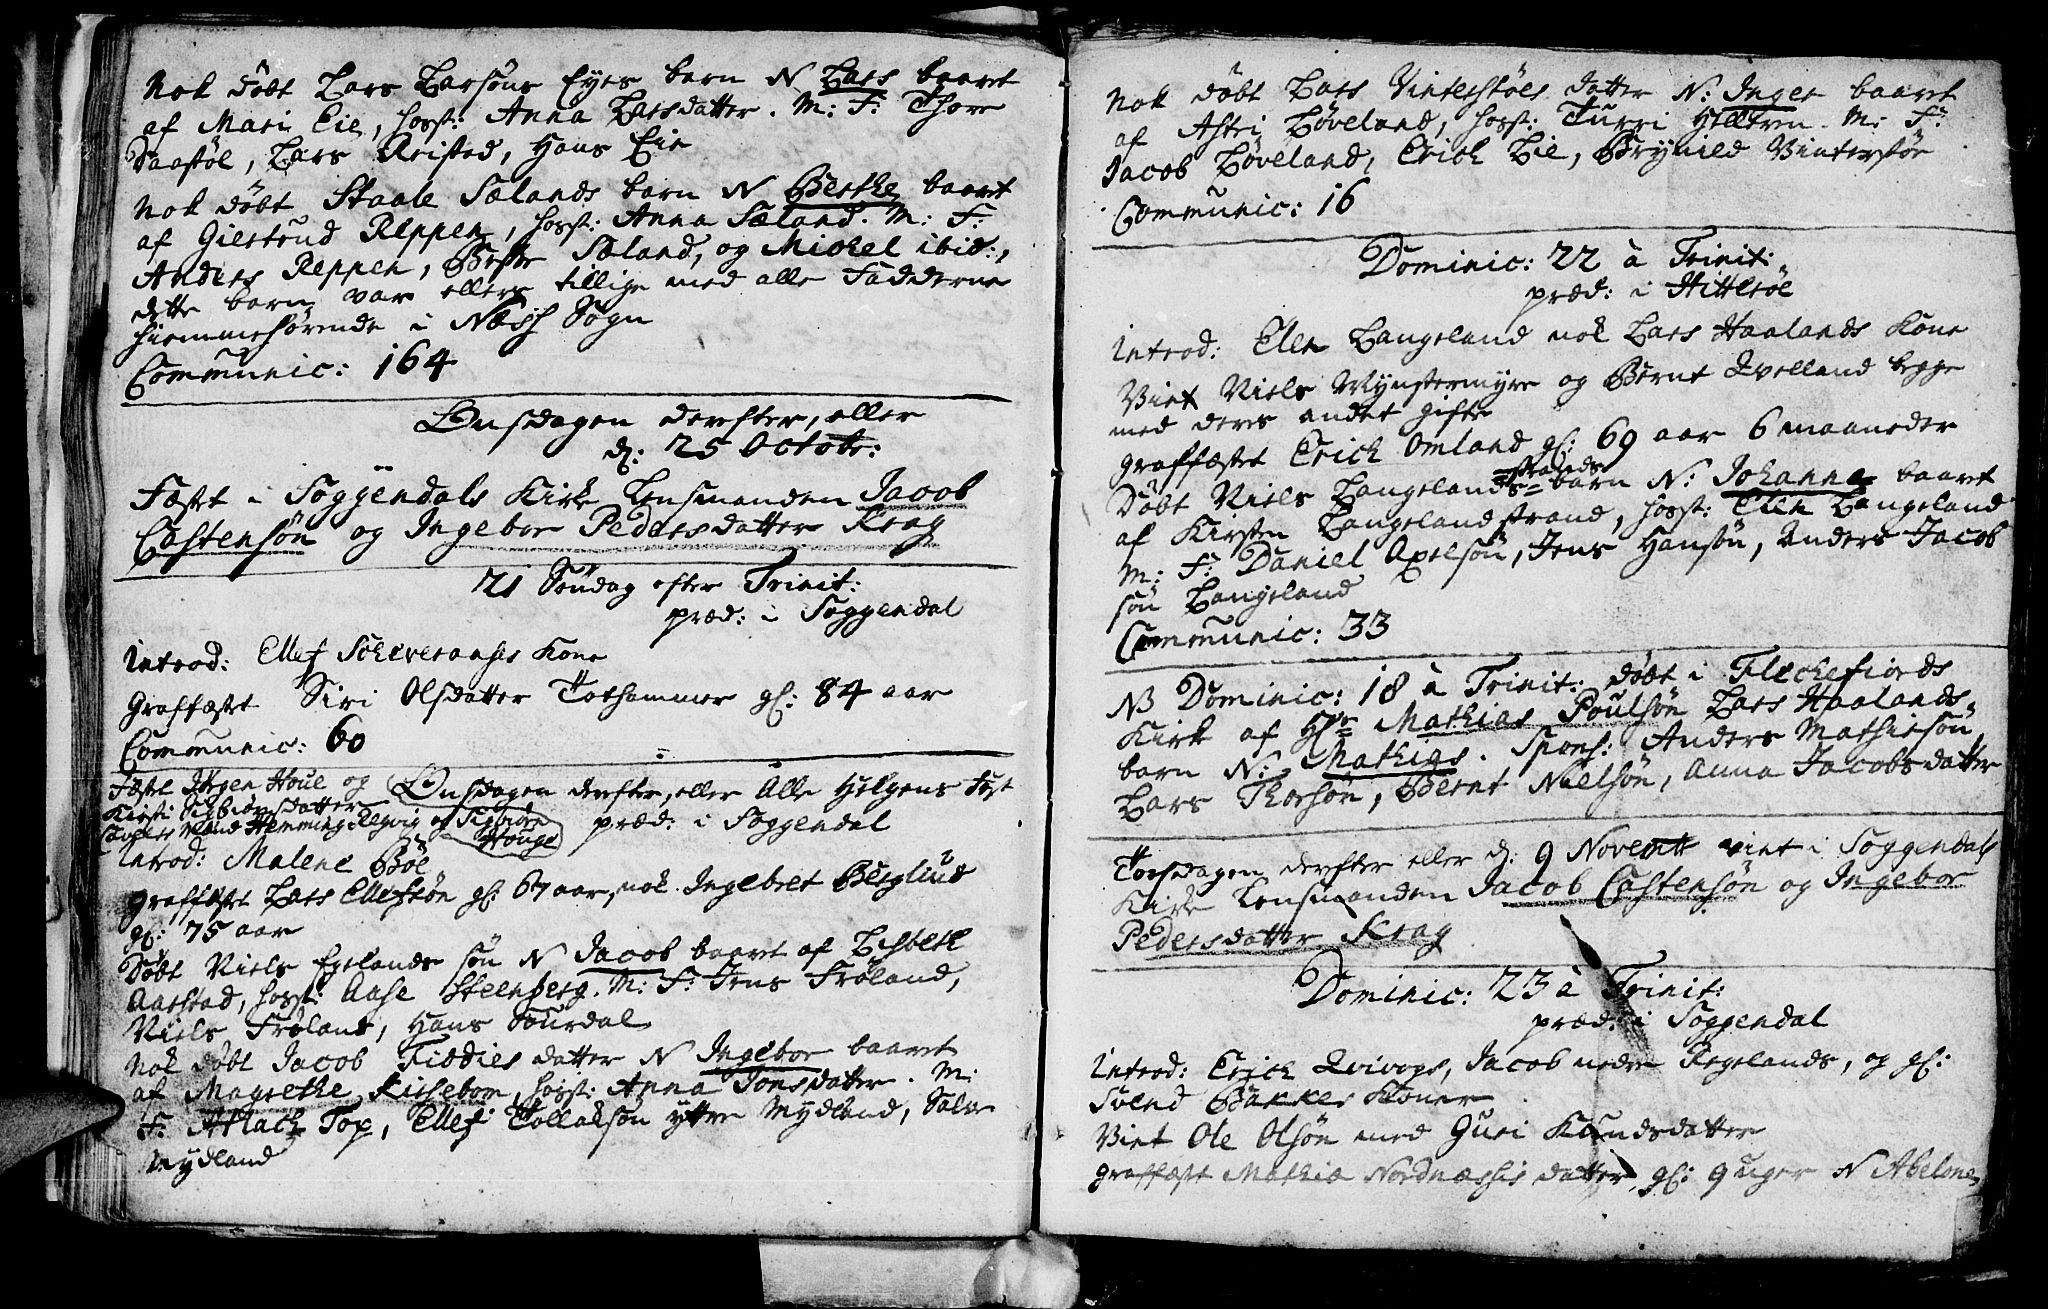 Nok døbt Lars Larsøns Eyes barn N Lars baaret
af Mari Eie, hosst: Anna Larsdatter. M: F: Thore
Daastøl, Lars Reistad, Hans Eie
Nok døbt Staale Sælands barn N Berthe baaret
af Gieltrud Reppen, hosst: Anna Sæland. M: F:
Anders Reppen, Sæland, og Michel ibid:,
dette barn var ellers tillige med alle Fadderne
hiemmehørende i Næss Sogn
Communic: 164
Onsdagen derefter, eller
d: 25 Octobr:
Fæstet i Soggendals Kirke Lensmanden Jacob
Castensøn og Ingebor Pedersdatter Krag
21 Søndag efter Trinit:
præd: i Soggendal
Introd: Ellef Kone
Graffæstet Siri Olsdatter Tothammer gl: 84 aar
Communic: 60
Fæstet Jørgen Houe og
Kirsti Sigbiørnsdatter
Cavgers Mænd Hemming Regvig og Sigbiørn
Houge
Onsdagen derefter, eller Alle Helgens Fæst
præd: i Soggendal
Introd: Malene Bøe
Graffæstet Lars Ellefsøn gl: 67 aar, nok Ingebret Berglius
gl: 75 aar
Døbt Niels Egelands søn N Jacob baaret af Lisbeth
Aarstad, hosst: Aase Steenberg. M: F: Jens Frøland,
Niels Frøland, Hans Suurdal
Nok døbt Jacob Fiddies datter N Ingebor baaret
af Magrethe Kirsebom, hosst: Anna Jonsdatter. M:
F: Atlach Top, Ellef Tollaksøn yttre Mydland, Salve
Mydland
Nok døbt Lars Vinterstøls datter N: Inger baaret
af Astri Løveland, hosst: Turri Hilltren. M: F:
Jacob Løveland, Erich Lie, Brynild Vinterstøe
Communic: 16
Dominic: 22 à Trinit:
præd: i Hitterøe
Introd: Elen Langeland nok Lars Haalands Kone
Viet Niels Mynstermyre og Bernt Qvelland begge
med deres andet gifte
Graffæstet Erich Omland gl: 69 aar 6 maaneder
Døbt Niels Langelandsstrands barn N: Johanna baaret
af Kirsten Langelandstrand, hosst: Elen Langeland
M: F: Daniel Axelsøn, Jens Hansøn, Anders Jacob
søn Langeland
Communic: 33
NB Dominic: 18 à Trinit: døbt i Fleckefiords
Kirk af Hr Mathias Poulsøn Lars Haalands
barn N: Mathias. Spons: Anders Mathiesøn,
Lars Thorsøn, Bernt Nielsøn, Anna Jacobsdatter
Torsdagen derefter eller d: 9 Novembr viet i Soggendals
Kirke Lensmanden Jacob Castensøn og Ingebor
Pedersdatter Krag
Dominic: 23 à Trinit:
præd: i Soggendal
Introd: Erich Qvivogs, Jacob nedre Regelands, og gl:
Svend Bakkes Koner
Viet Ole Olsøn med Guri Knudsdatter
Graffæstet Mathia Nordnæssis datter, gl: 9 uger N Abelone